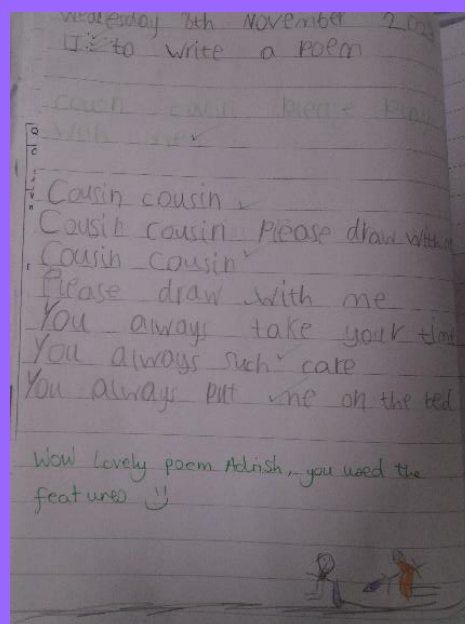 Wednesday 8th November 202
LI: to write a poem
please
with me
Cousin cousin
Cousin cousin please draw with
Cousin cousin
Please draw with me
You always take your time
You always such care
You always put me on the bed
Wow lovely poem Adrish, you used the
features